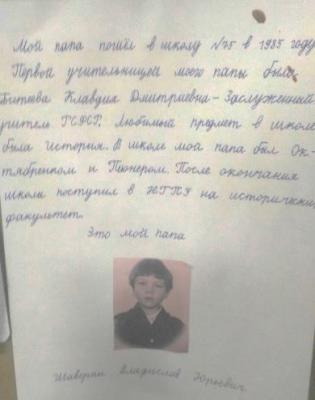 Мой папа пошёл в школу №75 в 1985 году.
Первой учительницей моего папы была
Клавдия Дмитриевна - Заслуженный
учитель РСФСР. Любимый предмет в школе
была История. В школе мой папа был Ок-
тябрёнком и Пионером. После окончания
школы поступил в НГПУ на исторический
факультет.
Это мой папа
Владислав Юрьевич